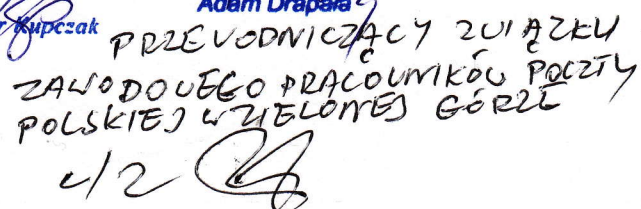 Adam Drapała
r Kupczak
PRZEWODNICZĄCY ZWIĄZKU
ZAWODOWEGO PRACOWNIKÓW POCZTY
POLSKIEJ W ZIELONEJ GÓRZE
w/z